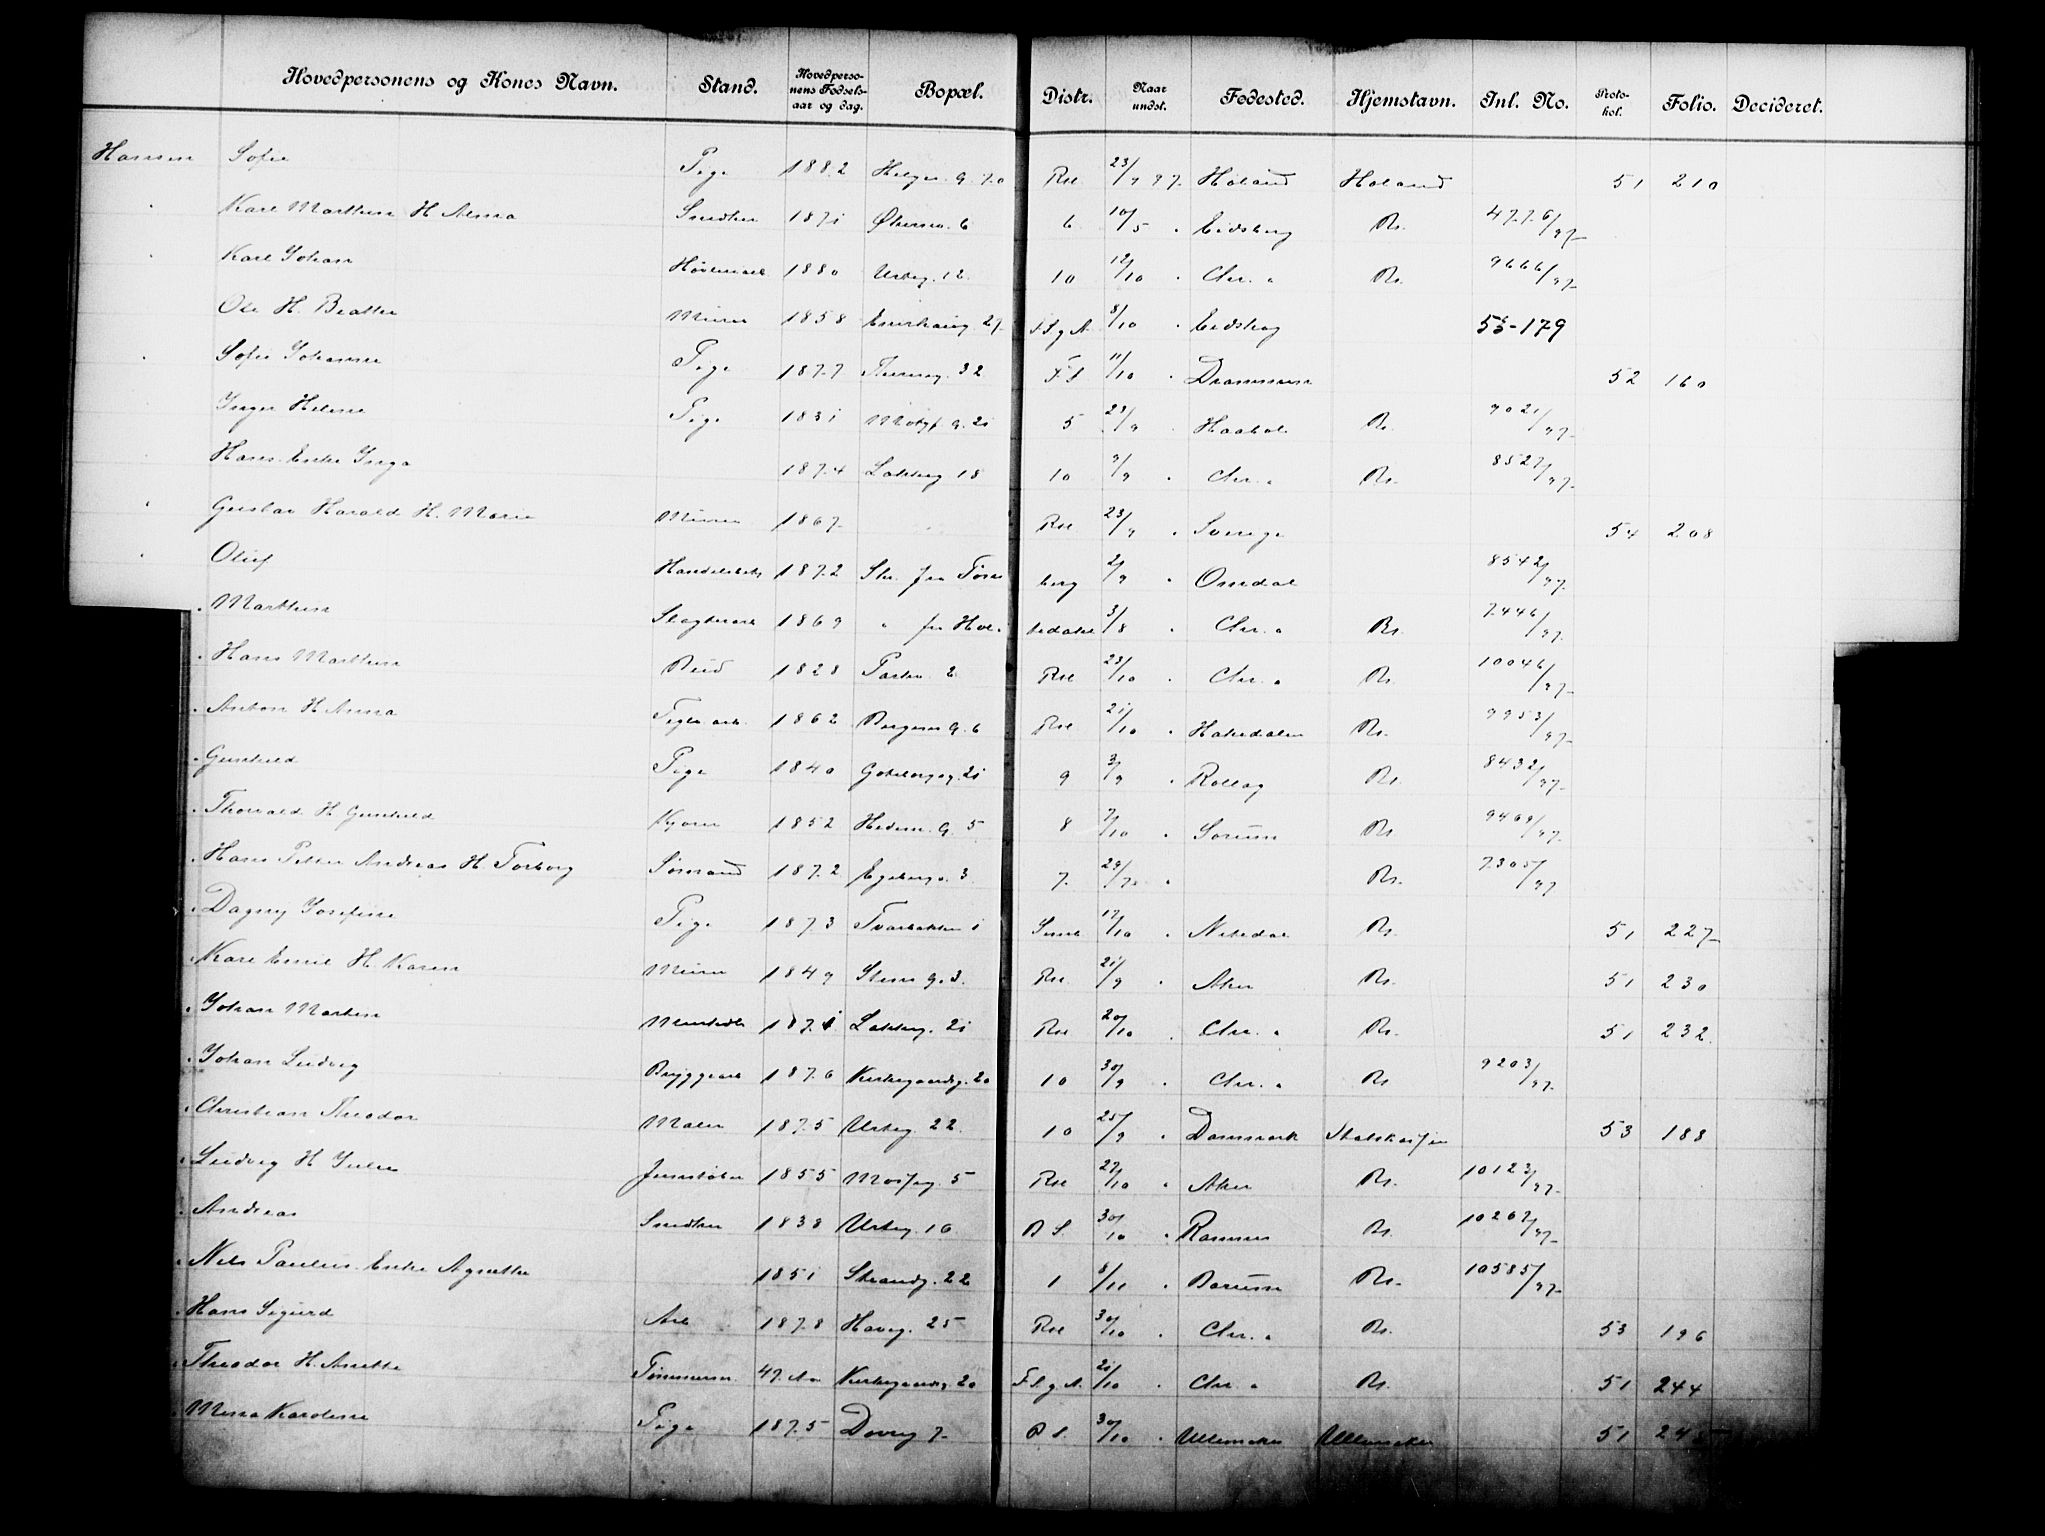 Hovedpersonens og Kones Navn. Stand. Hovedpersonens Fødselsaar og dag. Bopæl. Distr. Naar undst. Fødested. Hjemstavn. Inl. No. Protokol. Folio. Decideret.
Hansen Sofie Pige 1882 Helges. g. 70 Rst 23/9 97 Høland Høland 51 210
Karl Marthin H Alma Snedker 1871 6 6 10/5 " Eidsberg Rs. 4776/97
Karl Johan 1880 Urteg. 12 10 12/10 " Chr. a Rs. 9666/97
Ole H. Beathe Murer 1858 27 F.S.g A. 8/10 " Eidskog 55-179
Sofie Johanne Pige 1877 32 F S 11/10 " Drammen 52 160
Inger Helene Pige 1831 Motzf. g. 21 5 23/9 " Haabøl Rs. 9021/97
Hans. Enke Inga 1874 Lakkeg 18 10 9/9 " Chr. a Rs. 8527/97
Gustav Harald H. Marie Murer 1867 Rst 23/9 " Sverige 54 208
Oluf 1872 Skr. fra Tønsberg 2/9 " Omdal 8542/97
Marthin Slagteriarb 1869 " fra Hol 3/8 " Chr. a Rs. 7446/97
Hans Marthin Bud 1828 Parkv. 2 Rst 23/10 " Chr. a Rs. 10046/97
Anton H Anna Teglv. arb. 1862 Bergens g. 6 Rst 21/10 " Hakedalen Rs. 9953/97
Gunhild Pige 1840 Gøteborgsg. 21 9 3/9 " Rollag Rs. 8432/97
Thorvald H Gunhild Kjører 1852 Hedem. g. 5 8 7/10 " Sørum Rs. 9469/97
Hans Peter Andreas H. Torborg Sømand 1872 Egebergs. 3 7 29/7 " Rs. 7305/97
Dagny Josefine Pige 1873 Tværbakken 1 17/10 " Nitedal Rs. 51 227
Karl Emil H. Karen Murer 1849 Stens g. 3. Rst 21/9 " Aker Rs. 51 230
Johan Martin 1871 Lakkeg. 21 Rst 20/10 " Chr. a Rs. 51 232
Johan Ludvig Bryggearb 1876 Kirkegaardsg. 20 10 30/9 " Chr. a Rs 9203/97
Christian Theodor Maler 1875 Urteg. 22 10 25/9 " Danmark Statskassen 53 188
Ludvig H Julie Jernstøber 1855 Mosseg. 5 Rst 27/10 " Aker Rs. 10123/97
Andreas Snedker 1838 Urteg. 16 B S. 30/10 " Ramnes Rs. 10267/97
Nils Paulus. Enke Agnethe 1851 Strandg. 22 1 8/11 " Bærum Rs. 10585/97
Hans Sigurd Arb 1878 Haveg. 25 Rst 30/10 " Chr. a Rs. 53 196
Theodor H. Anette Tømmerm. 47 Aar Kirkegaardsg 20 F.S.g.A. 21/10 " Chr. a Rs. 51 244
Mina Karoline Pige 1875 Dovreg 7 B S. 30/10 " Ullensaker Ullensaker 51 245